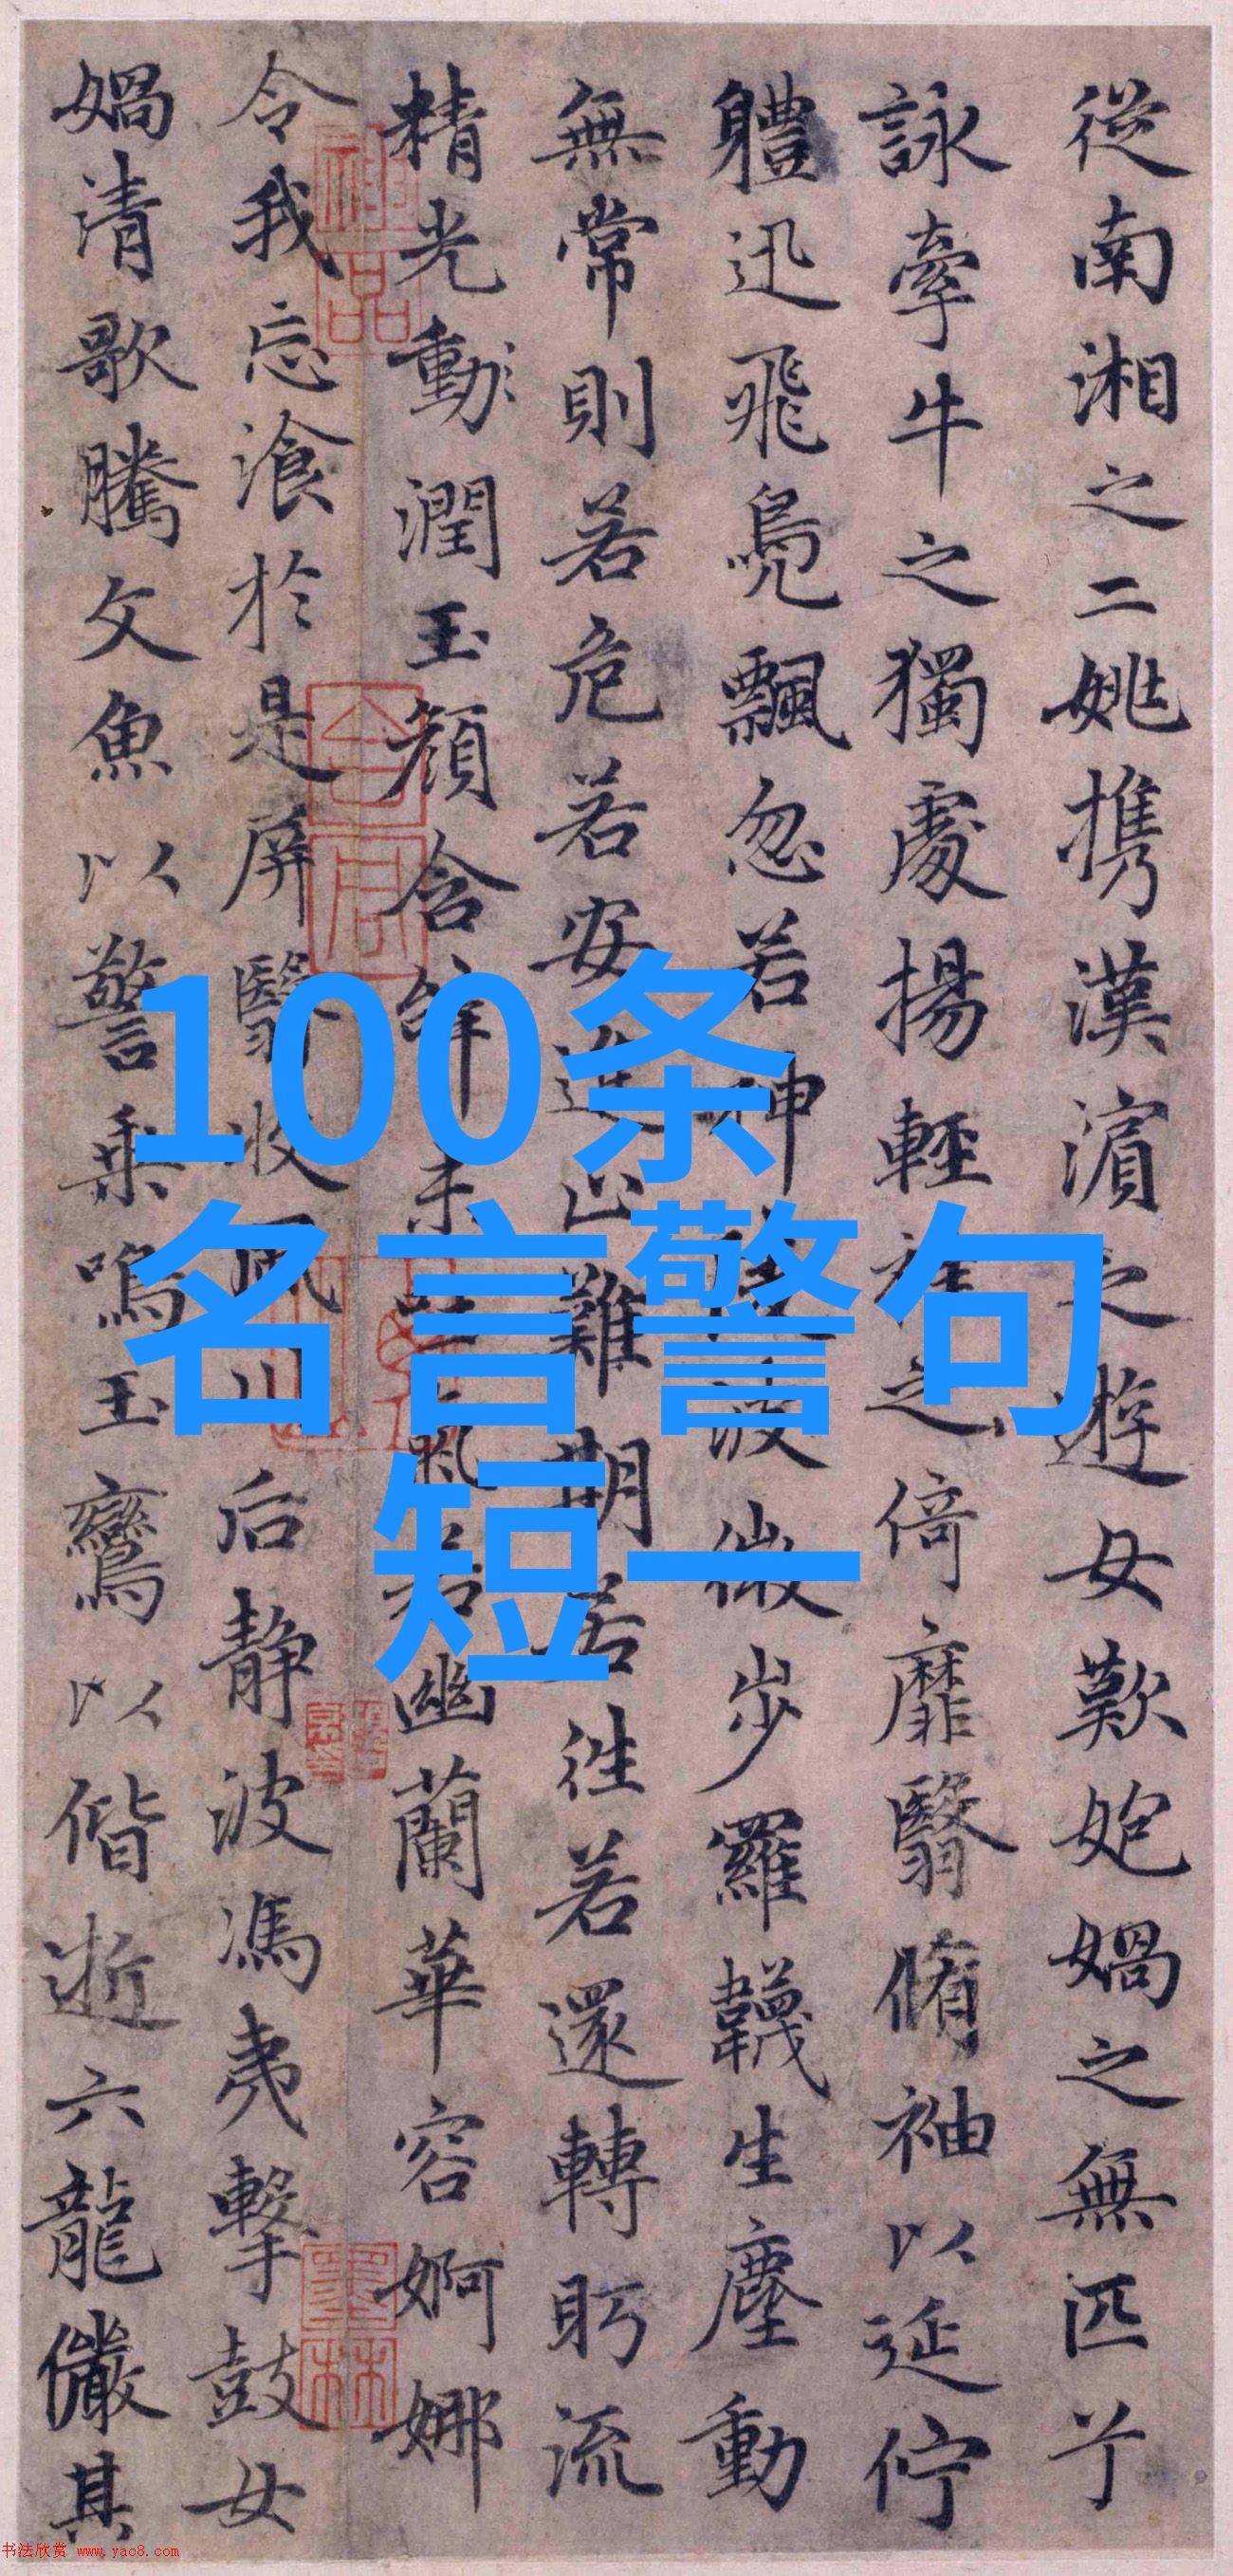 從南湘之二姚携漢濵之遊女歎媧之無匹兮
詠牽牛之獨處揚輕袿之倚靡翳脩袖以延佇
軆迅飛鳧飄忽若神陵波微步羅韈生塵動
無常則若危若安進止難期若往若還轉眄流
精光動潤玉顏含辭未吐氣若幽蘭華容婀娜
令我忘飡於是屏翳收風川后静波馮夷擊鼓女
媧清歌騰文魚以警乗鳴玉鸞以偕逝六龍儼其
神品
墨林
100条
名言警句
短一
书法欣赏 www.yac8.com